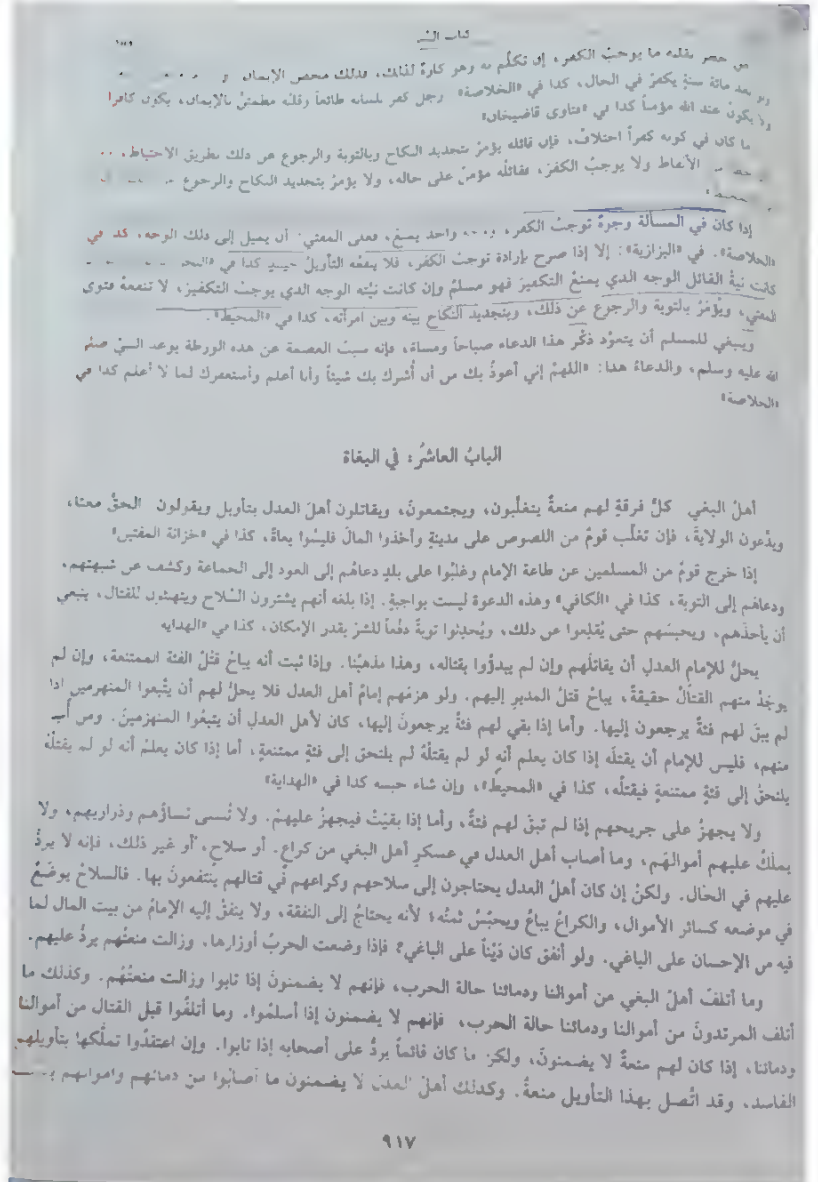 كتاب السير
بقلبه ما يوجب الكفر، إن تكلّم به وهو كارهٌ لذلك، فذلك محض الإيمان
بعد مائة سنةٍ يكفرُ في الحال، كذا في «الخلاصة» رجل كفر بلسانه طائعاً وقلبه مطمئنٌ بالإيمان، يكون كافرا
ولا يكونُ عند الله مؤمناً كذا في «فتاوى قاضيخان»
ما كان في كونه كفراً اختلافٌ، فإن قائله يؤمرُ بتجديد النكاح وبالتوبة والرجوع عن ذلك بطريق الاحتياط،
الألفاظ ولا يوجبُ الكفرَ، فقائلُه مؤمنٌ على حاله، ولا يؤمرُ بتجديد النكاح والرجوع
إذا كان في المسألة وجوهٌ توجبُ الكفر، واحد يمنع، فعلى المفتي أن يميل إلى ذلك الوجه، كذا في
«الخلاصة». في «البزازية»: إلا إذا صرح بإرادة توجبُ الكفر، فلا ينفعُه التأويلُ حينئذٍ كذا في
كانت نيةُ القائل الوجه الذي يمنعُ التكفيرَ فهو مسلمٌ وإن كانت نيّته الوجه الذي يوجبُ التكفيرَ، لا تنفعهُ فتوى
المفتي، ويؤمَرُ بالتوبة والرجوع عن ذلك، وبتجديد النّكاح بينه وبين امرأته، كذا في «المحيط».
وينبغي للمسلم أن يتعوّد ذكْر هذا الدعاء صباحاً ومساءً، فإنه سببُ العصمة عن هذه الورطة بوعد النبيّ صلى
الله عليه وسلم، والدعاءُ هذا: «اللهمّ إني أعوذُ بك من أن أُشرك بك شيئاً وأنا أعلم وأستغفرك لما لا أعلم كذا في
«الخلاصة»
البابُ العاشرُ: في البغاة
أهلُ البغي كلُّ فرقةٍ لهم منعةٌ يتغلّبون، ويجتمعونَ، ويقاتلون أهلَ العدل بتأويل ويقولون الحقُّ معنا،
ويدّعون الولايةَ، فإن تغلّب قومٌ من اللصوص على مدينةٍ وأخذوا المالَ فليسُوا بغاةً، كذا في «خزانة المفتين»
إذا خرج قومٌ من المسلمين عن طاعة الإمام وغلبُوا على بلدٍ دعاهُم إلى العود إلى الجماعة وكشف عن شبهتهم،
ودعاهُم إلى التوبة، كذا في «الكافي» وهذه الدعوة ليست بواجبةٍ. إذا بلغه أنهم يشترون السّلاح ويتهيئون للقتال، ينبغي
أن يأخذَهم، ويحبسَهم حتى يُقلِعوا عن ذلك، ويُحدِثوا توبةً دفْعاً للشرّ بقدر الإمكان، كذا في «الهداية
يحلُّ للإمام العدلِ أن يقاتلَهم وإن لم يبدؤوا بقتاله، وهذا مذهبُنا. وإذا ثبت أنه يباحُ قتلُ الفئة الممتنعة، وإن لم
يوجَدْ منهم القتالُ حقيقةً، يباحُ قتلُ المدبرِ إليهم. ولو هزمَهم إمامُ أهل العدل فلا يحلُّ لهم أن يتْبعوا المنهزمين إذا
لم يبقَ لهم فئةٌ يرجعون إليها. وأما إذا بقي لهم فئةٌ يرجعونَ إليها، كان لأهل العدلِ أن يتبعُوا المنهزمينَ. ومن أُسِر
منهم، فليس للإمام أن يقتلَه إذا كان يعلم أنه لو لم يقتلْهُ لم يلتحق إلى فئةٍ ممتنعةٍ، أما إذا كان يعلمُ أنه لو لم يقتلْهُ
يلتحقُ إلى فئةٍ ممتنعةٍ فيقتلُه، كذا في «المحيط»، وإن شاء حبسه كذا في «الهداية»
ولا يجهزُ على جريحهم إذا لم تبقَ لهم فئةٌ، وأما إذا بقيَتْ فيجهزُ عليهمْ. ولا تُسبى نساؤُهم وذراريهم، ولا
يملَكُ عليهم أموالهَم، وما أصاب أهل العدل في عسكرِ أهل البغي من كراعٍ. أو سلاحٍ، أو غير ذلك، فإنه لا يردُّ
عليهم في الحال. ولكنْ إن كان أهلُ العدل يحتاجون إلى سلاحهم وكراعهم في قتالهم ينتفعونَ بها. فالسلاحُ يوضَعُ
في موضعه كسائر الأموال، والكراعُ يباعُ ويحبَسُ ثمنُه؛ لأنه يحتاجُ إلى النفقة، ولا ينفقُ إليه الإمامُ من بيت المال لما
فيه من الإحسان على الباغي. ولو أنفق كان دَيْناً على الباغي؟ فإذا وضعت الحربُ أوزارها، وزالت منعتُهم يردُّ عليهم.
وما أتلفَ أهلُ البغي من أموالنا ودمائنا حالة الحرب، فإنهم لا يضمنونَ إذا تابوا وزالت منعتُهُم. وكذلك ما
أتلف المرتدونَ من أموالنا ودمائنا حالة الحرب، فإنهم لا يضمنون إذا أسلمُوا. وما أتلفُوا قبل القتال من أموالنا
ودمائنا، إذا كان لهم منعةٌ لا يضمنونَ، ولكن ما كان قائماً يردُّ على أصحابه إذا تابوا. وإن اعتقدُوا تملُّكَها بتأويلهم
الفاسد، وقد اتّصل بهذا التأويل منعةٌ. وكذلك أهلُ العدل لا يضمنون ما أصابُوا من دمائهم وأموالهم
٩١٧